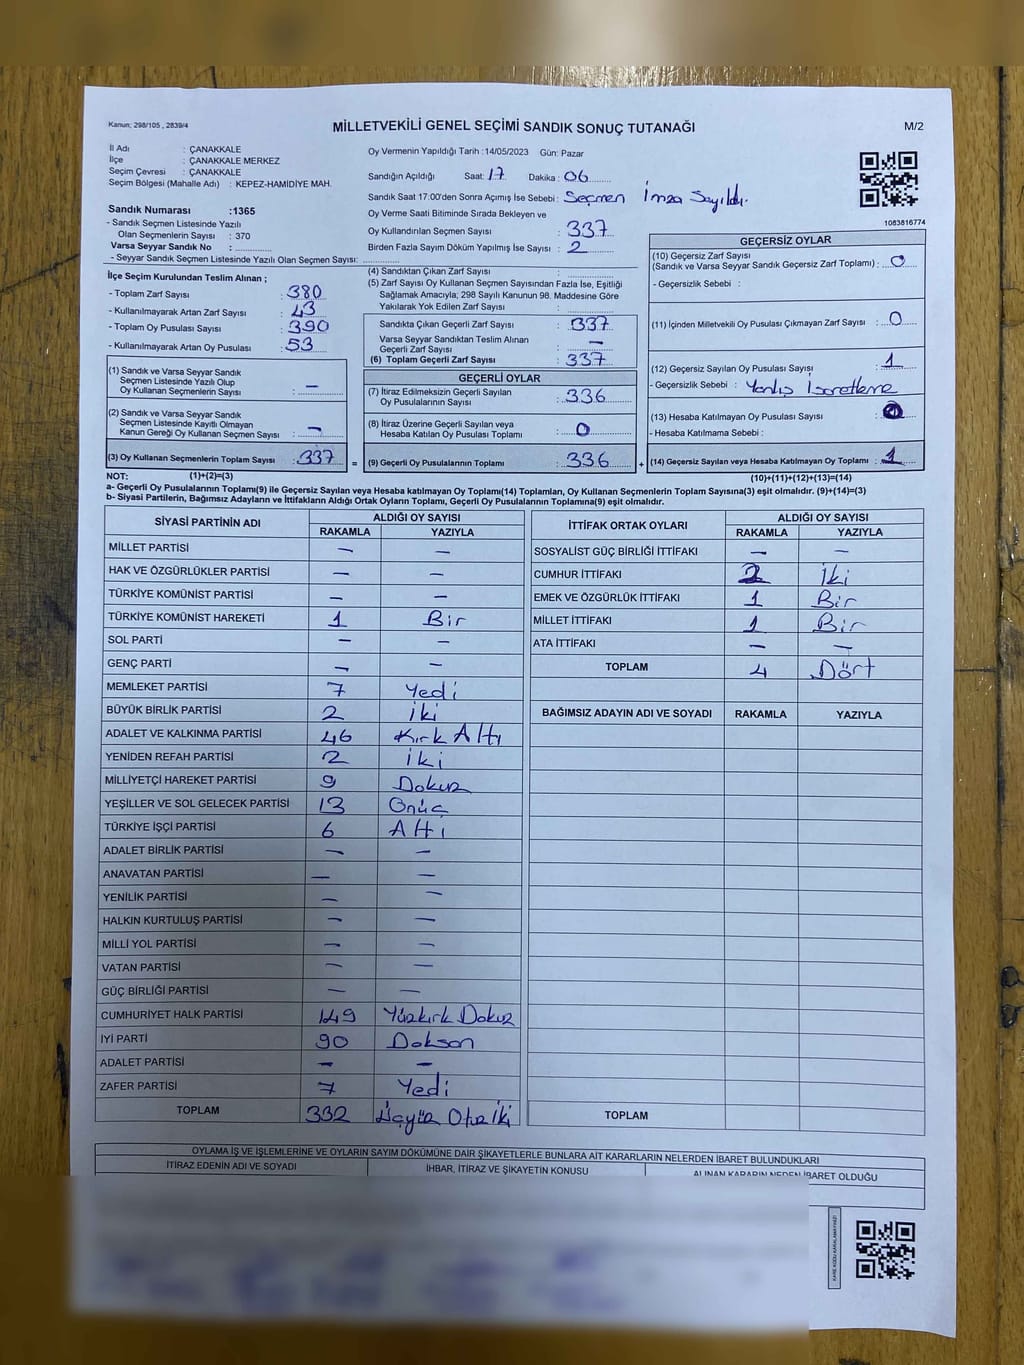 Kanun; 298/105 , 2839/4
MİLLETVEKİLİ GENEL SEÇİMİ SANDIK SONUÇ TUTANAĞI
M/2
İl Adı : ÇANAKKALE
İlçe : ÇANAKKALE MERKEZ
Seçim Çevresi : ÇANAKKALE
Seçim Bölgesi (Mahalle Adı) : KEPEZ-HAMİDİYE MAH.
Sandık Numarası :1365
- Sandık Seçmen Listesinde Yazılı
Olan Seçmenlerin Sayısı : 370
Varsa Seyyar Sandık No :
- Seyyar Sandık Seçmen Listesinde Yazılı Olan Seçmen Sayısı:
Oy Vermenin Yapıldığı Tarih :14/05/2023 Gün: Pazar
Sandığın Açıldığı Saat: 17 Dakika : 06
Sandık Saat 17:00'den Sonra Açımış İse Sebebi : Seçmen İmza Sayıldı.
Oy Verme Saati Bitiminde Sırada Bekleyen ve
Oy Kullandırılan Seçmen Sayısı : 337
Birden Fazla Sayım Döküm Yapılmış İse Sayısı : 2
1083816774
İlçe Seçim Kurulundan Teslim Alınan ;
- Toplam Zarf Sayısı : 380
- Kullanılmayarak Artan Zarf Sayısı : 43
- Toplam Oy Pusulası Sayısı : 390
- Kullanılmayarak Artan Oy Pusulası : 53
(1) Sandık ve Varsa Seyyar Sandık
Seçmen Listesinde Yazılı Olup
Oy Kullanan Seçmenlerin Sayısı : —
(2) Sandık ve Varsa Seyyar Sandık
Seçmen Listesinde Kayıtlı Olmayan
Kanun Gereği Oy Kullanan Seçmen Sayısı : —
(3) Oy Kullanan Seçmenlerin Toplam Sayısı : 337
(4) Sandıktan Çıkan Zarf Sayısı :
(5) Zarf Sayısı Oy Kullanan Seçmen Sayısından Fazla İse, Eşitliği
Sağlamak Amacıyla; 298 Sayılı Kanunun 98. Maddesine Göre
Yakılarak Yok Edilen Zarf Sayısı :
Sandıkta Çıkan Geçerli Zarf Sayısı : 337
Varsa Seyyar Sandıktan Teslim Alınan
Geçerli Zarf Sayısı : —
(6) Toplam Geçerli Zarf Sayısı : 337
GEÇERLİ OYLAR
(7) İtiraz Edilmeksizin Geçerli Sayılan
Oy Pusulalarının Sayısı : 336
(8) İtiraz Üzerine Geçerli Sayılan veya
Hesaba Katılan Oy Pusulası Toplamı : 0
= (9) Geçerli Oy Pusulalarının Toplamı : 336 +
GEÇERSİZ OYLAR
(10) Geçersiz Zarf Sayısı
(Sandık ve Varsa Seyyar Sandık Geçersiz Zarf Toplamı) : 0
- Geçersizlik Sebebi :
(11) İçinden Milletvekili Oy Pusulası Çıkmayan Zarf Sayısı : 0
(12) Geçersiz Sayılan Oy Pusulası Sayısı : 1
- Geçersizlik Sebebi : Yanlış İşaretleme
(13) Hesaba Katılmayan Oy Pusulası Sayısı :
- Hesaba Katılmama Sebebi :
(14) Geçersiz Sayılan veya Hesaba Katılmayan Oy Toplamı : 1
NOT: (1)+(2)=(3)
(10)+(11)+(12)+(13)=(14)
a- Geçerli Oy Pusulalarının Toplamı(9) ile Geçersiz Sayılan veya Hesaba katılmayan Oy Toplamı(14) Toplamları, Oy Kullanan Seçmenlerin Toplam Sayısına(3) eşit olmalıdır. (9)+(14)=(3)
b- Siyasi Partilerin, Bağımsız Adayların ve İttifakların Aldığı Ortak Oyların Toplamı, Geçerli Oy Pusulalarının Toplamına(9) eşit olmalıdır.
SİYASİ PARTİNİN ADI ALDIĞI OY SAYISI
RAKAMLA YAZIYLA
MİLLET PARTİSİ — —
HAK VE ÖZGÜRLÜKLER PARTİSİ — —
TÜRKİYE KOMÜNİST PARTİSİ — —
TÜRKİYE KOMÜNİST HAREKETİ 1 Bir
SOL PARTİ — —
GENÇ PARTİ — —
MEMLEKET PARTİSİ 7 Yedi
BÜYÜK BİRLİK PARTİSİ 2 İki
ADALET VE KALKINMA PARTİSİ 46 Kırk Altı
YENİDEN REFAH PARTİSİ 2 İki
MİLLİYETÇİ HAREKET PARTİSİ 9 Dokuz
YEŞİLLER VE SOL GELECEK PARTİSİ 13 Onüç
TÜRKİYE İŞÇİ PARTİSİ 6 Altı
ADALET BİRLİK PARTİSİ — —
ANAVATAN PARTİSİ — —
YENİLİK PARTİSİ — —
HALKIN KURTULUŞ PARTİSİ — —
MİLLİ YOL PARTİSİ — —
VATAN PARTİSİ — —
GÜÇ BİRLİĞİ PARTİSİ — —
CUMHURİYET HALK PARTİSİ 149 Yüzkırk Dokuz
İYİ PARTİ 90 Doksan
ADALET PARTİSİ — —
ZAFER PARTİSİ 7 Yedi
TOPLAM 332 Üçyüz Otuz İki
İTTİFAK ORTAK OYLARI ALDIĞI OY SAYISI
RAKAMLA YAZIYLA
SOSYALİST GÜÇ BİRLİĞİ İTTİFAKI — —
CUMHUR İTTİFAKI 2 İki
EMEK VE ÖZGÜRLÜK İTTİFAKI 1 Bir
MİLLET İTTİFAKI 1 Bir
ATA İTTİFAKI — —
TOPLAM 4 Dört
BAĞIMSIZ ADAYIN ADI VE SOYADI RAKAMLA YAZIYLA
TOPLAM
OYLAMA İŞ VE İŞLEMLERİNE VE OYLARIN SAYIM DÖKÜMÜNE DAİR ŞİKAYETLERLE BUNLARA AİT KARARLARIN NELERDEN İBARET BULUNDUKLARI
İTİRAZ EDENİN ADI VE SOYADI İHBAR, İTİRAZ VE ŞİKAYETİN KONUSU ALINAN KARARIN NEDEN İBARET OLDUĞU